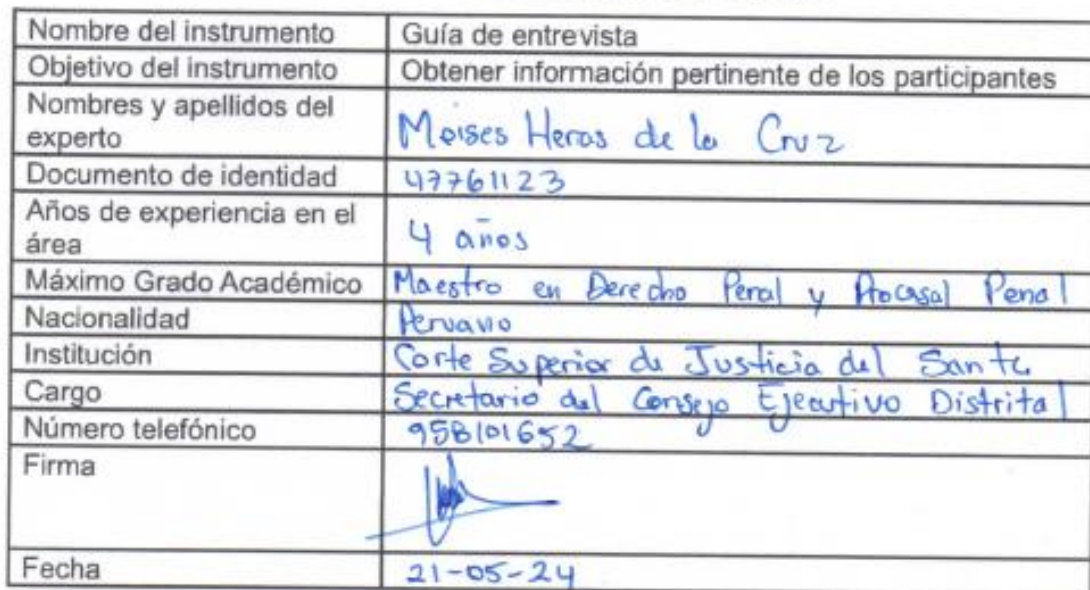 Nombre del instrumento Guía de entrevista
Objetivo del instrumento Obtener información pertinente de los participantes
Nombres y apellidos del
experto Moises Heras de la Cruz
Documento de identidad 47761123
Años de experiencia en el
área 4 años
Máximo Grado Académico Maestro en Derecho Penal y Procesal Penal
Nacionalidad Peruano
Institución Corte Superior de Justicia del Santa
Cargo Secretario del Consejo Ejecutivo Distrital
Número telefónico 958101652
Firma
Fecha 21-05-24